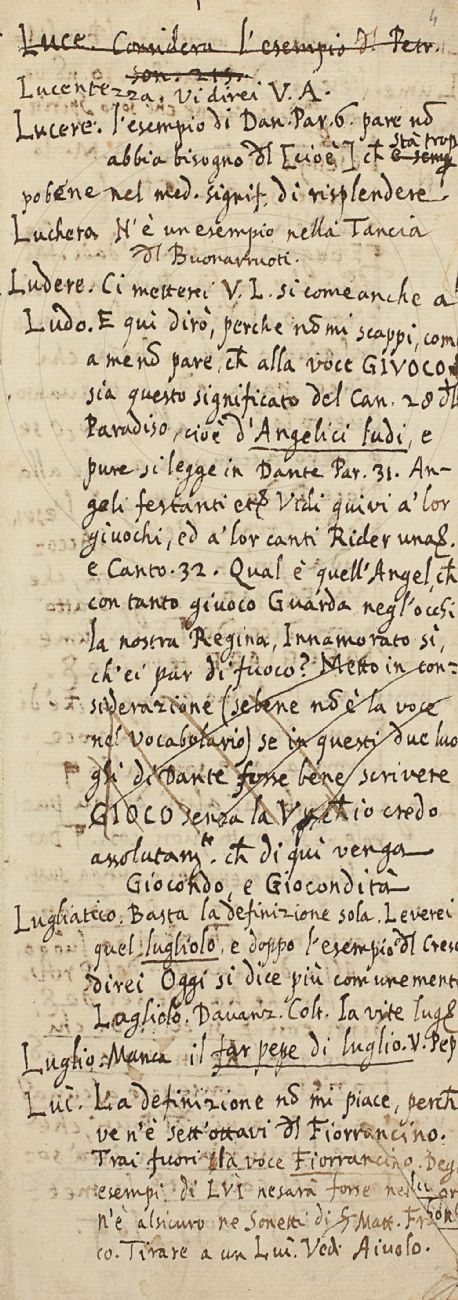 4
Luce. Considera l'esempio dl Petr.
son. 215.
Lucentezza. Vi direi V. A.
Lucere. l'esempio di Dan. Par. 6. pare nō
abbia bisogno dl [cioè] ch̄ stà trop
e semp
pobene nel med. signif. di risplendere.
Luchera N'è un esempio nella Tancia
dl Buonarruoti.
Ludere. Ci metterei V. L. si come anche a
Ludo. E quì dirò, perche nō mi scappi, com
a me nō pare, ch̄ alla voce GIVOCO
sia questo significato del Can. 28 dl
Paradiso, cioè d'Angelici ludi, e
pure si legge in Dante Par. 31. An-
geli festanti etc̄ Vidi quivi a' lor
giuochi, ed a' lor canti Rider una
e Canto. 32. Qual è quell'Angel, ch̄
con tanto giuoco Guarda negl'occhi
la nostra Regina, Innamorato sì,
ch'ei par di fuoco? Metto in con-
siderazione (sebene nō è la voce
nel vocabolario) se in questi due luo
ghi di Dante forse bene scrivere
GIOCO senza la V, ch̄ io credo
assolutam.te ch̄ di quì venga
Giocondo, e Giocondità
Lugliatico. Basta la definizione sola. Leverei
quel lugliolo, e doppo l'esempio dl Cresc
direi Oggi si dice più comunemente
Lugliolo. Davanz. Colt. la vite lug
Luglio. Manca il far pepe di luglio. V. Pep
Luì. La definizione nō mi piace, perch̄
ve n'è sett'ottavi dl Fiorrancino.
Trai fuori la voce Fiorrancino. Deg
esempi di LVI nesarà forse nel
n'è alsicuro ne Sonetti di Matt. Fr
co. Tirare a un Luì. Vedi Aiuolo.